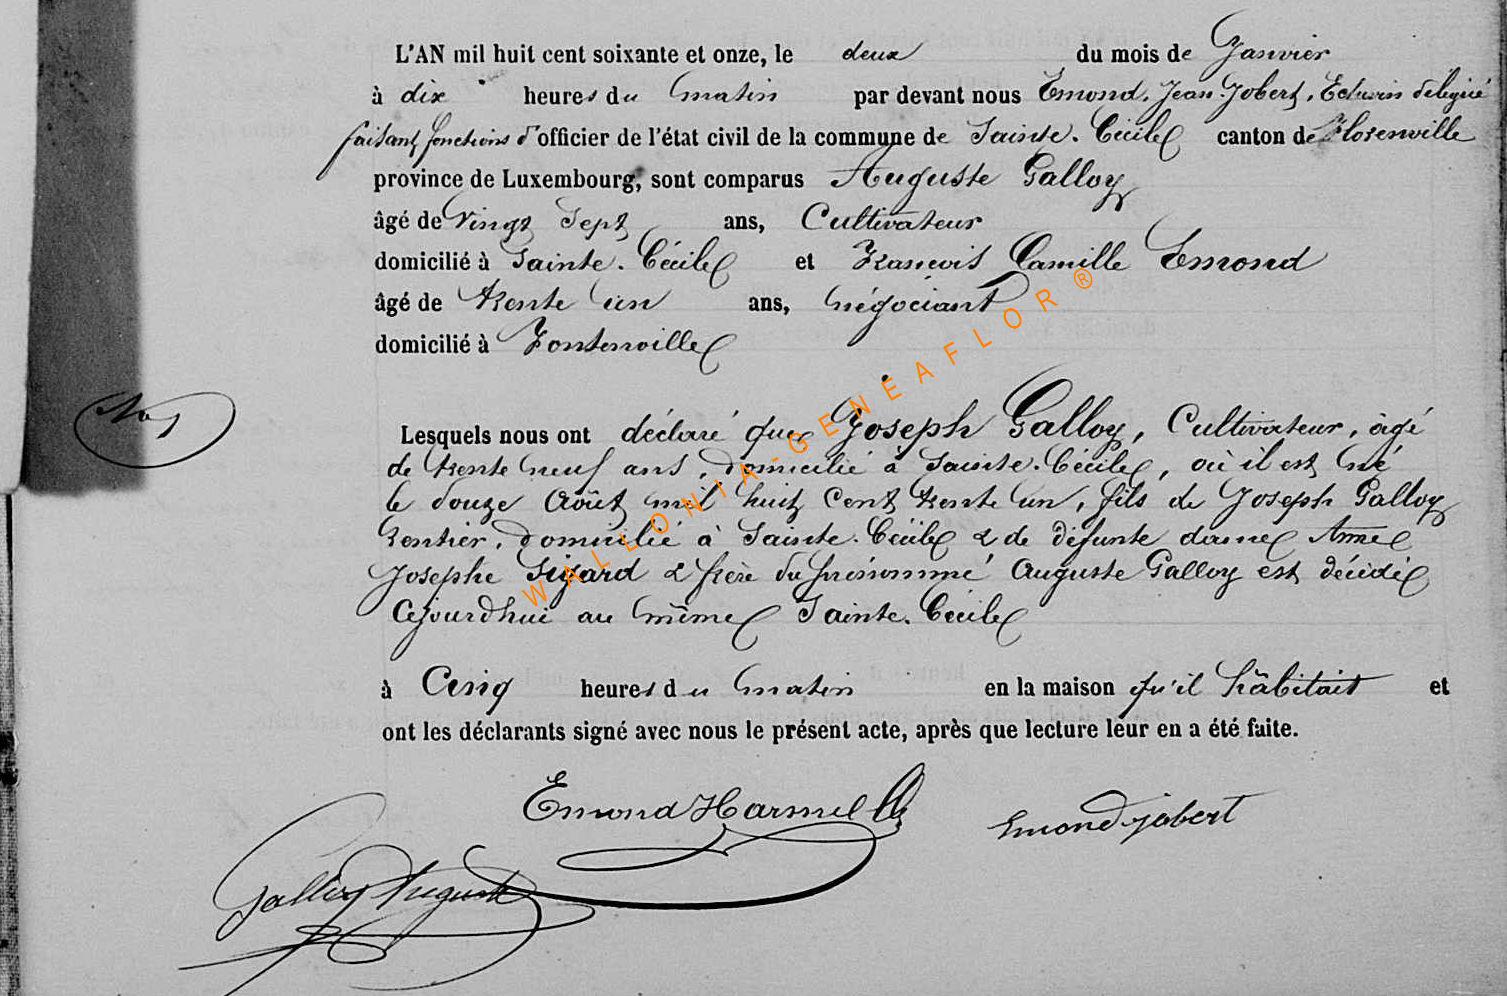 L'AN mil huit cent soixante et onze, le deux du mois de Janvier
à dix heures du matin par devant nous Emond, Jean Jobert, Echevin délégué
faisant fonctions d'officier de l'état civil de la commune de Sainte-Cécile canton de Florenville
province de Luxembourg, sont comparus Auguste Galloy
âgé de Vingt Sept ans, Cultivateur
domicilié à Sainte-Cécile et François Camille Emond
âgé de trente un ans, négociant
domicilié à Fontenoille
Lesquels nous ont déclaré que Joseph Galloy, Cultivateur, âgé
de trente neuf ans, domicilié à Sainte-Cécile, où il est né
le douze Août mil huit cent trente un, fils de Joseph Galloy
Rentier, domicilié à Sainte-Cécile & de défunte dame Anne
Josephe Sizard & frère du prénommé Auguste Galloy est décédé
Cejourd'hui au même Sainte-Cécile
à Cinq heures du matin en la maison qu'il habitait et
ont les déclarants signé avec nous le présent acte, après que lecture leur en a été faite.
Emond Harmel
Emond jobert
Galloy Auguste
WALLONIA-GENEAFLOR ®